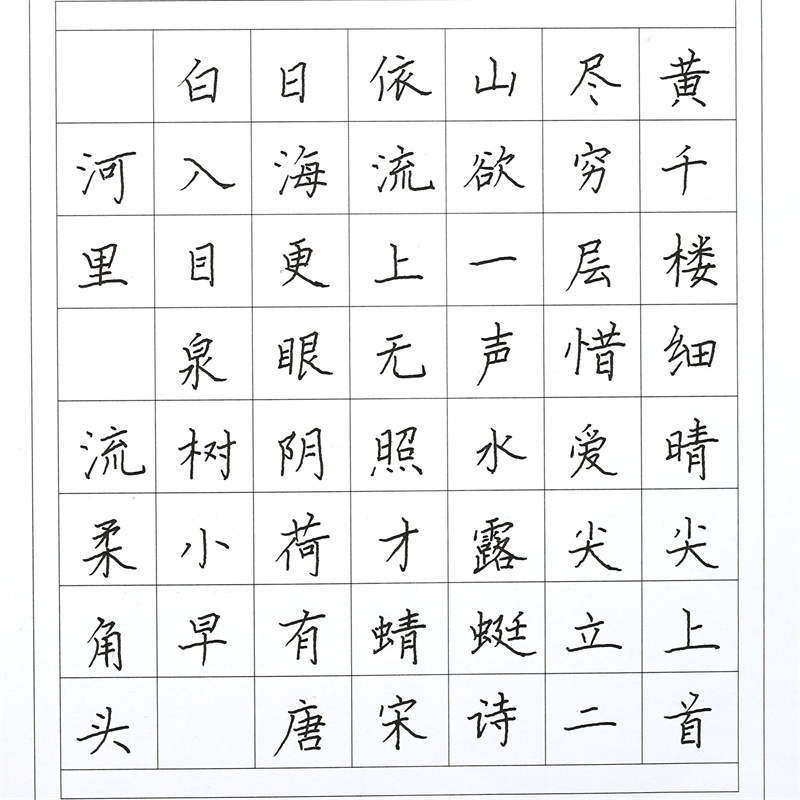 白日依山尽黄
河入海流欲穷千
里目更上一层楼
泉眼无声惜细
流树阴照水爱晴
柔小荷才露尖尖
角早有蜻蜓立上
头 唐宋诗二首